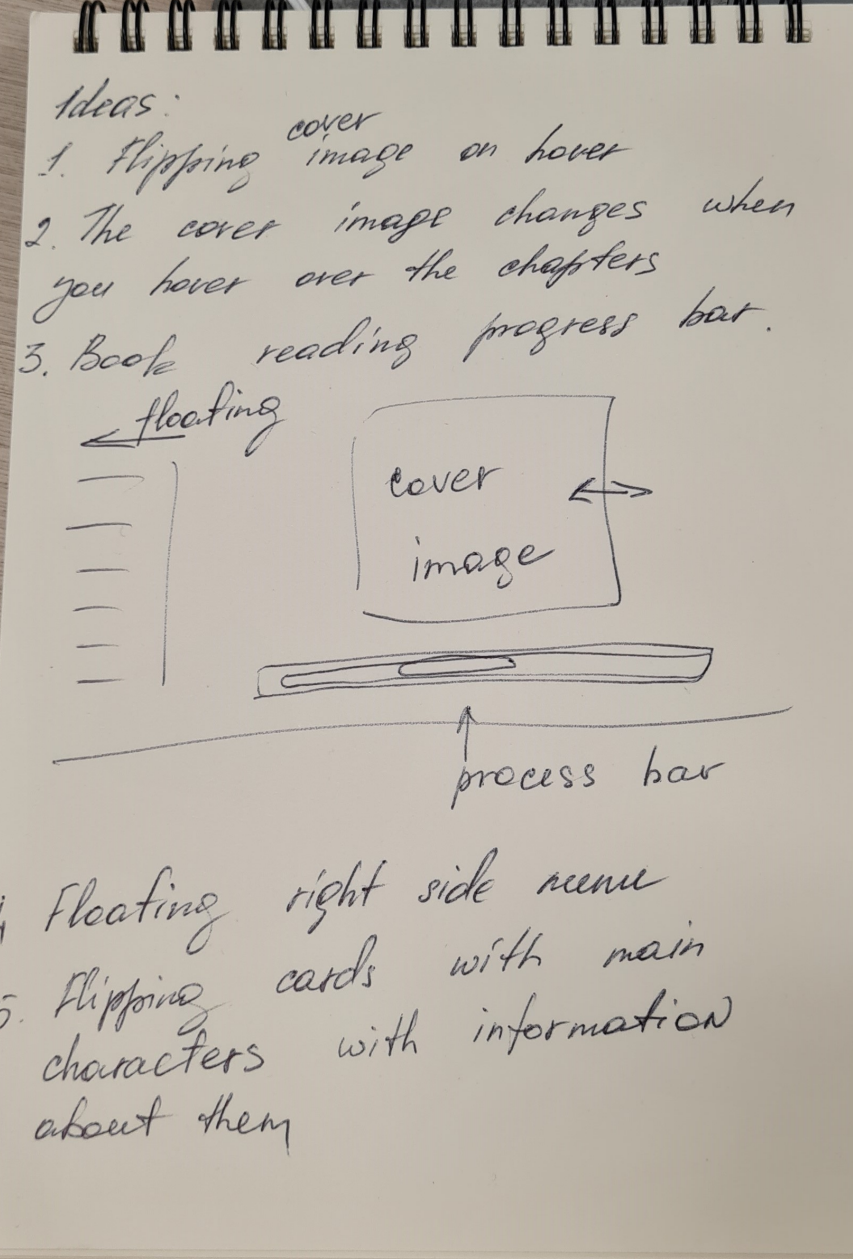 Ideas:
cover
1. Flipping image on hover
2. The cover image changes when
you hover over the chapters
3. Book reading progress bar.
floating
cover
image
process bar
Floating right side menu
5. Flipping cards with main
characters with information
about them